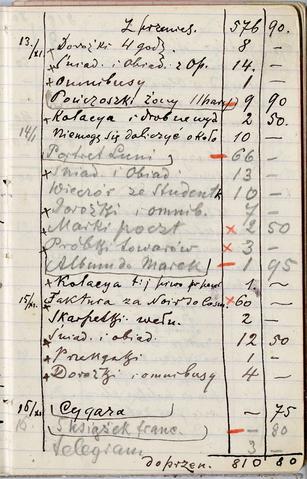 Z przenies. 576 90.
13/XI. Dorożki 4 godz. 8 —
Śniad. i Obiad. z Op. 14. —
Omnibusy 1 —
Pończoszki żony 11 par 9 90
Kolacya i drobnezyd 2 50
14/ Niemogę się doliczyć około 10 —
Portret Luni 66 —
Śniad. i Obiad. 13 —
Wieczór ze Student 10 —
Dorożki i omnib. 7 —
Marki poczt 2 50
Próbki towarów 3 —
Album do Marek 1 95
Kolacya t.j. piwo 1. —
15/XI. Faktura za 60 —
Skarpetki wełn. 2 —
Śniad. i obiad. 12 50
1 —
Dorożki i omnibusy 4 —
16/XI Cygara ~ 75
16 5 książek franc. — 80
Telegram 3 —
do przen. 810 80